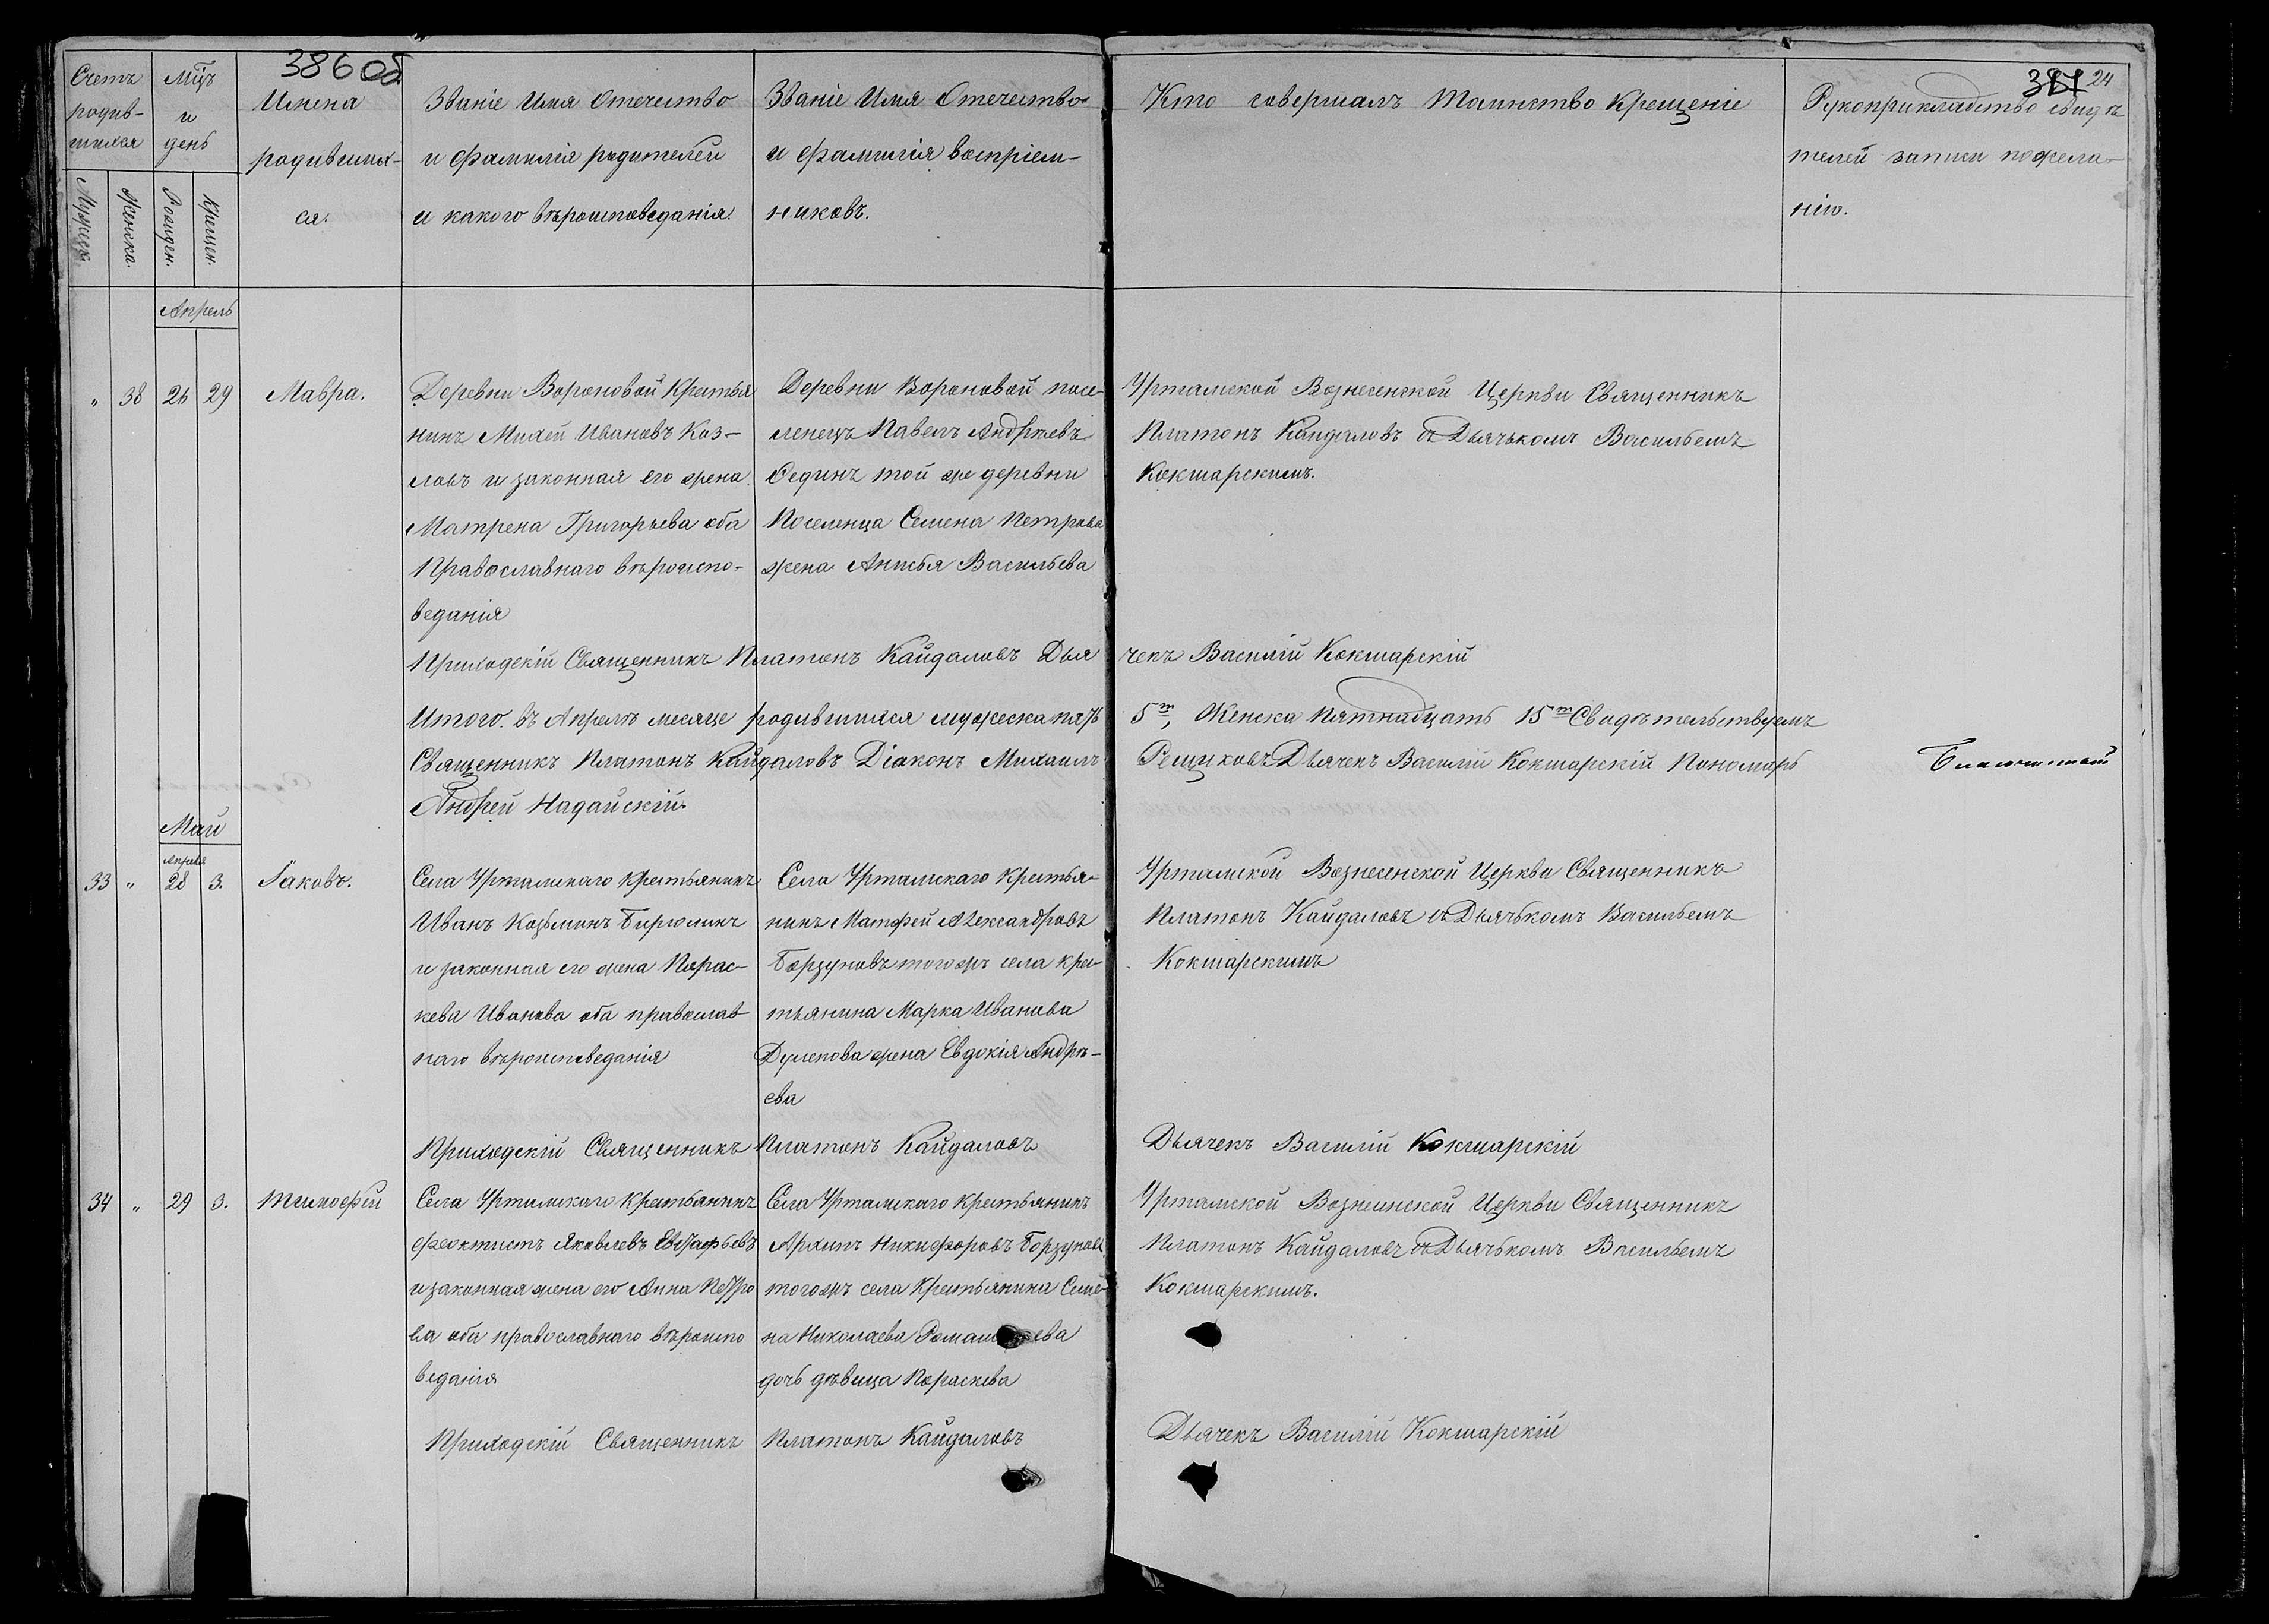 386 об
387 24
Счетъ родив-шихся
Мцъ и день
Имена родивших-ся.
Званіе Имя Отечество
и фамилія родителей
и какого вѣроисповеданія.
Званіе Имя Отечество
и фамилія воспріем-
никовъ.
Кто совершалъ Таинство Крещеніе
Рукоприкладство свидѣ
телей записи по жела-
нію.
Мужеск.
Женска.
Рожден.
Крещен.
Апрель
" 38 26 29 Мавра.
Деревни Вороновой Крестья
нинъ Михей Ивановъ Коз-
ловъ и законная его жена
Матрена Григорьева оба
Православнаго вѣроиспо-
веданія
Деревни Вороновой посе-
ленецъ Павелъ Андрѣевъ
Сединъ той же деревни
Поселенца Семена Петрова
жена Анисья Васильева
Уртамской Вознесенской Церкви Священникъ
Платонъ Кайдаловъ съ Дьячькомъ Васильемъ
Кокшарскимъ.
Приходскій Священникъ Платонъ Кайдаловъ Дья чекъ Василій Кокшарскій
Итого въ Апрелѣ месяце родившихся мужеска пять 5ть, Женска Пятнадцать 15ть Свидѣтельствуемъ
Священникъ Платонъ Кайдаловъ Діаконъ Михаилъ Рещиковъ Дьячекъ Василій Кокшарскій Пономарь
Андрей Надайскій.
Май
Апреля
33 " 28 3. Іаковъ.
Села Уртамскаго крестьянинъ
Иванъ Козьминъ Бирюлинъ
и законная его жена Парас-
кева Иванова оба православ
наго вѣроисповеданія
Села Уртамскаго Крестья-
нинъ Матфей Александровъ
Борзуновъ тогожъ села кре-
стьянина Марка Иванова
Дулепова жена Евдокія Андрѣ-
ева
Уртамской Вознесенской Церкви Священникъ
Платонъ Кайдаловъ съ Дьячькомъ Васильемъ
Кокшарскимъ
Приходскій Священникъ Платонъ Кайдаловъ Дьячекъ Василій Кокшарскій
34 " 29 3. Тимофей
Села Уртамскаго крестьянинъ
Феоктистъ Яковлевъ Евстафьевъ
и законная жена его Анна Петро
ва оба православнаго вѣроиспо
веданія
Села Уртамскаго Крестьянинъ
Архипъ Никифоровъ Борзуновъ
тогожъ села Крестьянина Семе-
на Николаева
дочь дѣвица Параскева
Уртамской Вознесенской Церкви Священникъ
Платонъ Кайдаловъ съ Дьячькомъ Васильемъ
Кокшарскимъ.
Приходскій Священникъ Платонъ Кайдаловъ Дьячекъ Василій Кокшарскій